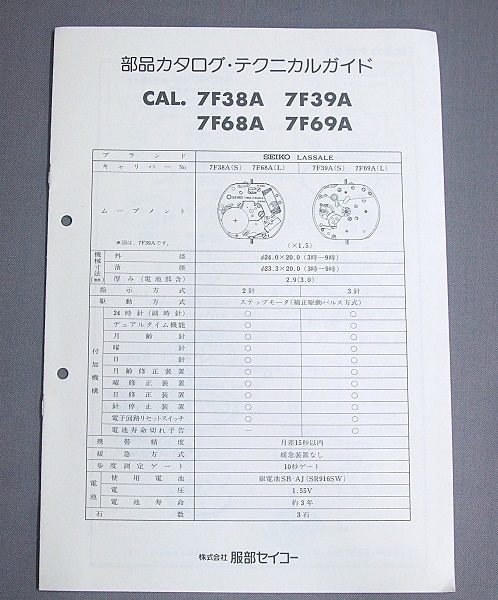 部品カタログ・テクニカルガイド
CAL. 7F38A 7F39A
7F68A 7F69A
ブランド SEIKO LASSALE
キャリバーNo. 7F38A(S) 7F68A(L) 7F39A(S) 7F69A(L)
ムーブメント
※図は、7F39Aです。 (×1.5)
機械寸法 外径 ø24.0×20.0 (3時−9時)
落径 ø23.3×20.0 (3時−9時)
厚み (電池部含) 2.9(3.0)
指示方式 2針 3針
駆動方式 ステップモータ(補正駆動パルス方式)
付加機構 24時針(副時針) ○ ○
デュアルタイム機能 ○ ○
月齢針 ○ ○
曜針 ○ ○
日針 ○ ○
月齢修正装置 ○ ○
曜修正装置 ○ ○
日修正装置 ○ ○
針停止装置 ○ ○
電子回路リセットスイッチ ○ ○
電池寿命切れ予告 − ○
携帯精度 月差15秒以内
緩急方式 緩急装置なし
歩度測定ゲート 10秒ゲート
電池 使用電池 銀電池SB-AJ(SR916SW)
電圧 1.55V
電池寿命 約3年
石数 3石
株式会社 服部セイコー